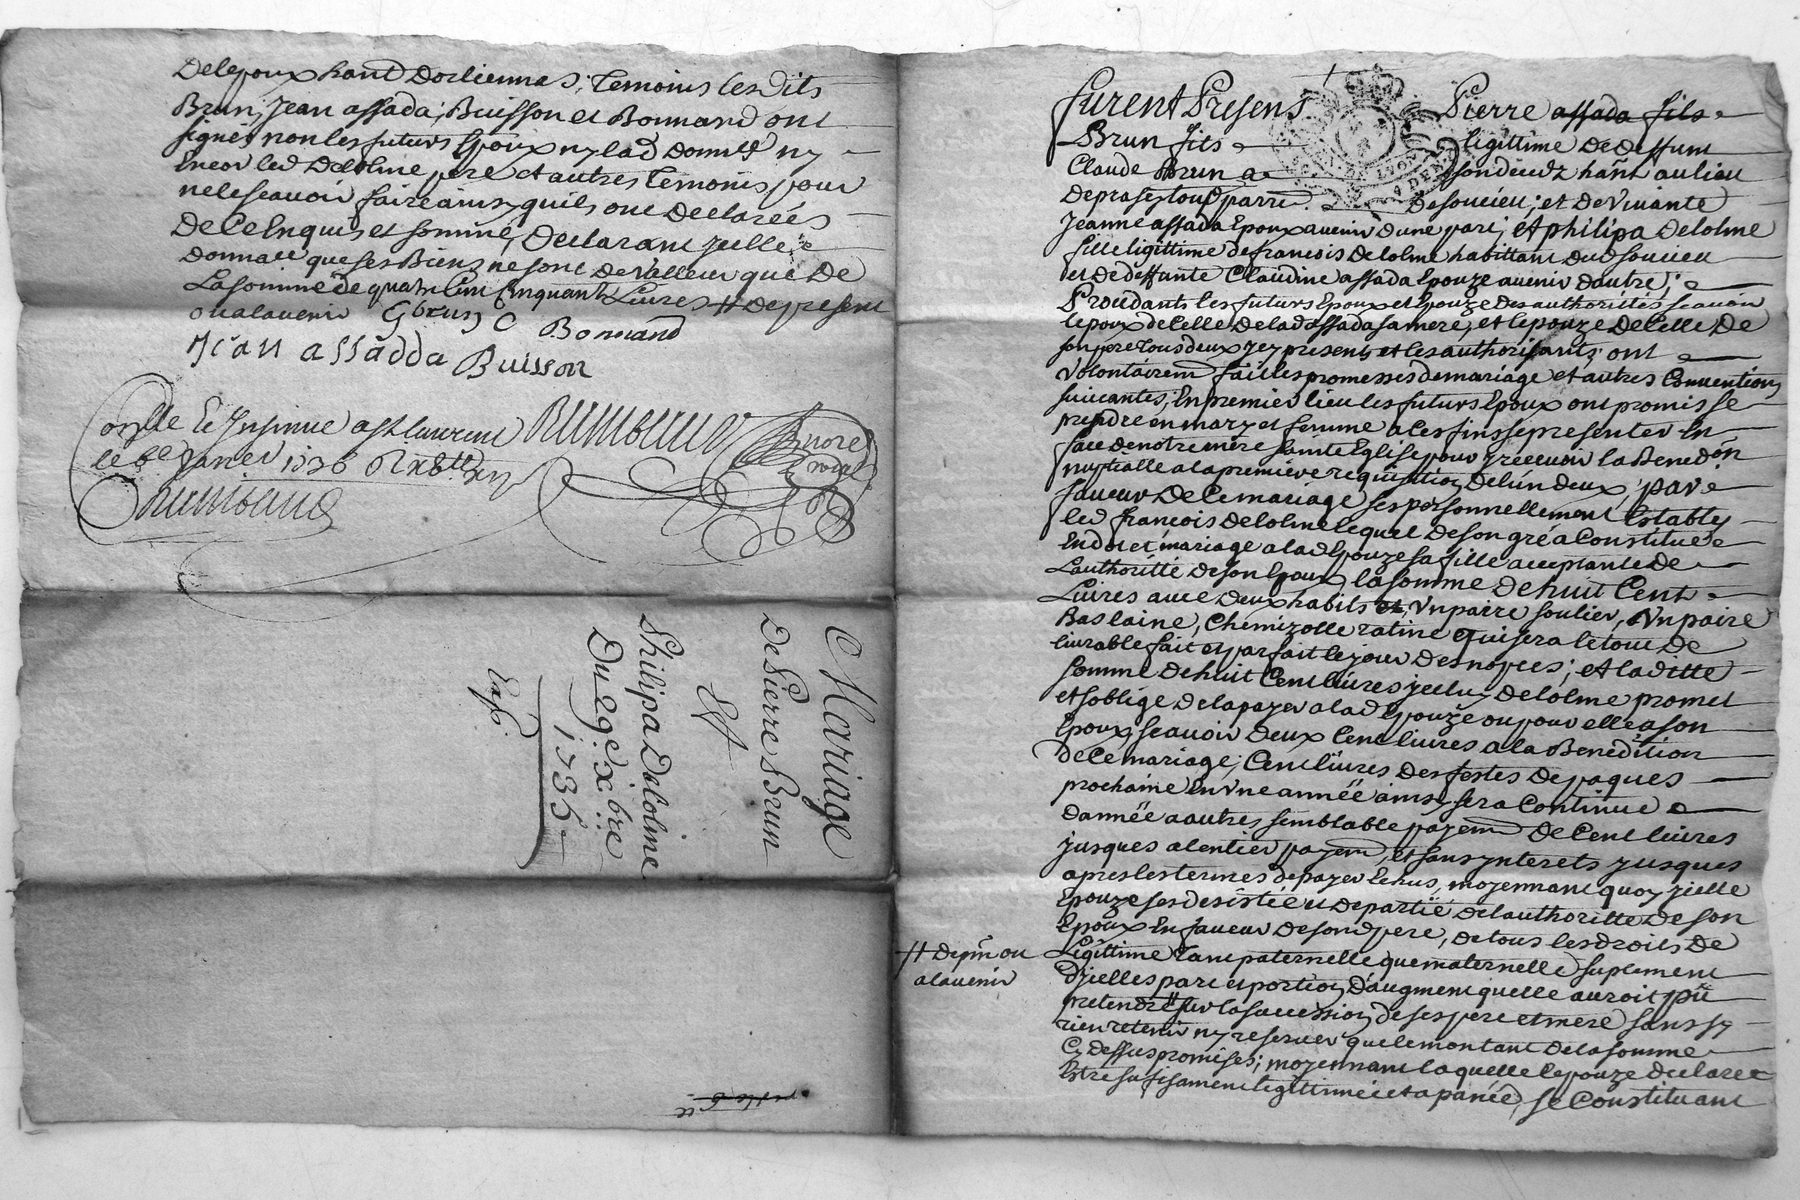 De lepoux hant Dorliennas; Temoins lesdits
Brun, Jean assada; Buisson et Bonnand ont
signés non les futurs Epoux ny lad
Encor led Delolme pere et autres Temoins pour
ne le scavoir faire ainsy quils ont Declarées
De ce Enquis et sommé, Declarant
que ses Biens ne sont De Valleur que De
La somme de quatre Cent Cinquante Livres // de present
ou a lavenir G brun C Bonnand
Jean assadda Buisson
Et Insinué a St Laurent
le Janvier 1736 Rimbaud
Rimbaud
Mariage
De Pierre Brun
Et
Philipa Dalolme
Du 29e xbre
1735
Exp.
furent Presens Pierre assada fils
Brun fils legittime De Deffunt
Claude Brun hant au lieu
parre De soucieu; et De Vivante
Jeanne assada Epoux avenir Dune part; et philipa Delolme
fille legittime de francois Delolme habittant Dud soucieu
et De deffunte Claudine assada Epouze avenir Dautre;
Procedants les futurs Epoux et Epouze Des authorités scavoir
lepoux De Celle De lad assada sa mere, et lepouze De Celle De
son pere tous deux icy presents et les authorisants; ont
Volontairem fait les promesses de mariage et autres Conventions
suivantes; En premier lieu les futurs Epoux ont promis se
prendre en mary et femme a les fins se presenter En
face de notre mere sainte Eglise pour y recevoir la Benedon
nuptialle a la premiere requisition De lun deux, par
faveur De Ce mariage ses personnellement Estably
led francois Delolme lequel De son gré a Constitué
En dot et mariage a lad Epouze sa fille acceptante De
Lauthoritté De son Epoux la somme De huit Cent
Livres avec Deux habits et, Un paire soulier, Un paire
Bas laine, Chemizolle ratine qui sera le tout De
livrable fait et parfait le jour Des nopces; et la ditte
somme De huit Cent livres jcelluy Delolme promet
et soblige De la payer a lad Epouze ou pour elle a son
Epoux, scavoir Deux Cent livres a la Benedition
De Ce mariage; Cent livres Des festes De paques
prochaine En Une année ainsy sera Continué
Dannée a autres semblable payem De Cent livres
jusques a lentier payem, et sans jnterets jusques
apres les termes De payer Echus, moyennant quoy jcelle
Epouze ses Desistée et Departie De lauthoritté De son
Epoux En faveur De sond pere, De tous les Droits De
// De pnt ou
a lavenir
Legittime Tant paternelle que maternelle suplement
Djcelles part et portion Daugment quelle auroit pû
pretendre // sur la succession De ses pere et mere sans sy
rien retenir ny reserver que le montant De la somme
Cy Dessus promises; moyennant laquelle lepouze Declare
Estre sufisament legittimée et apanée, se Constituant